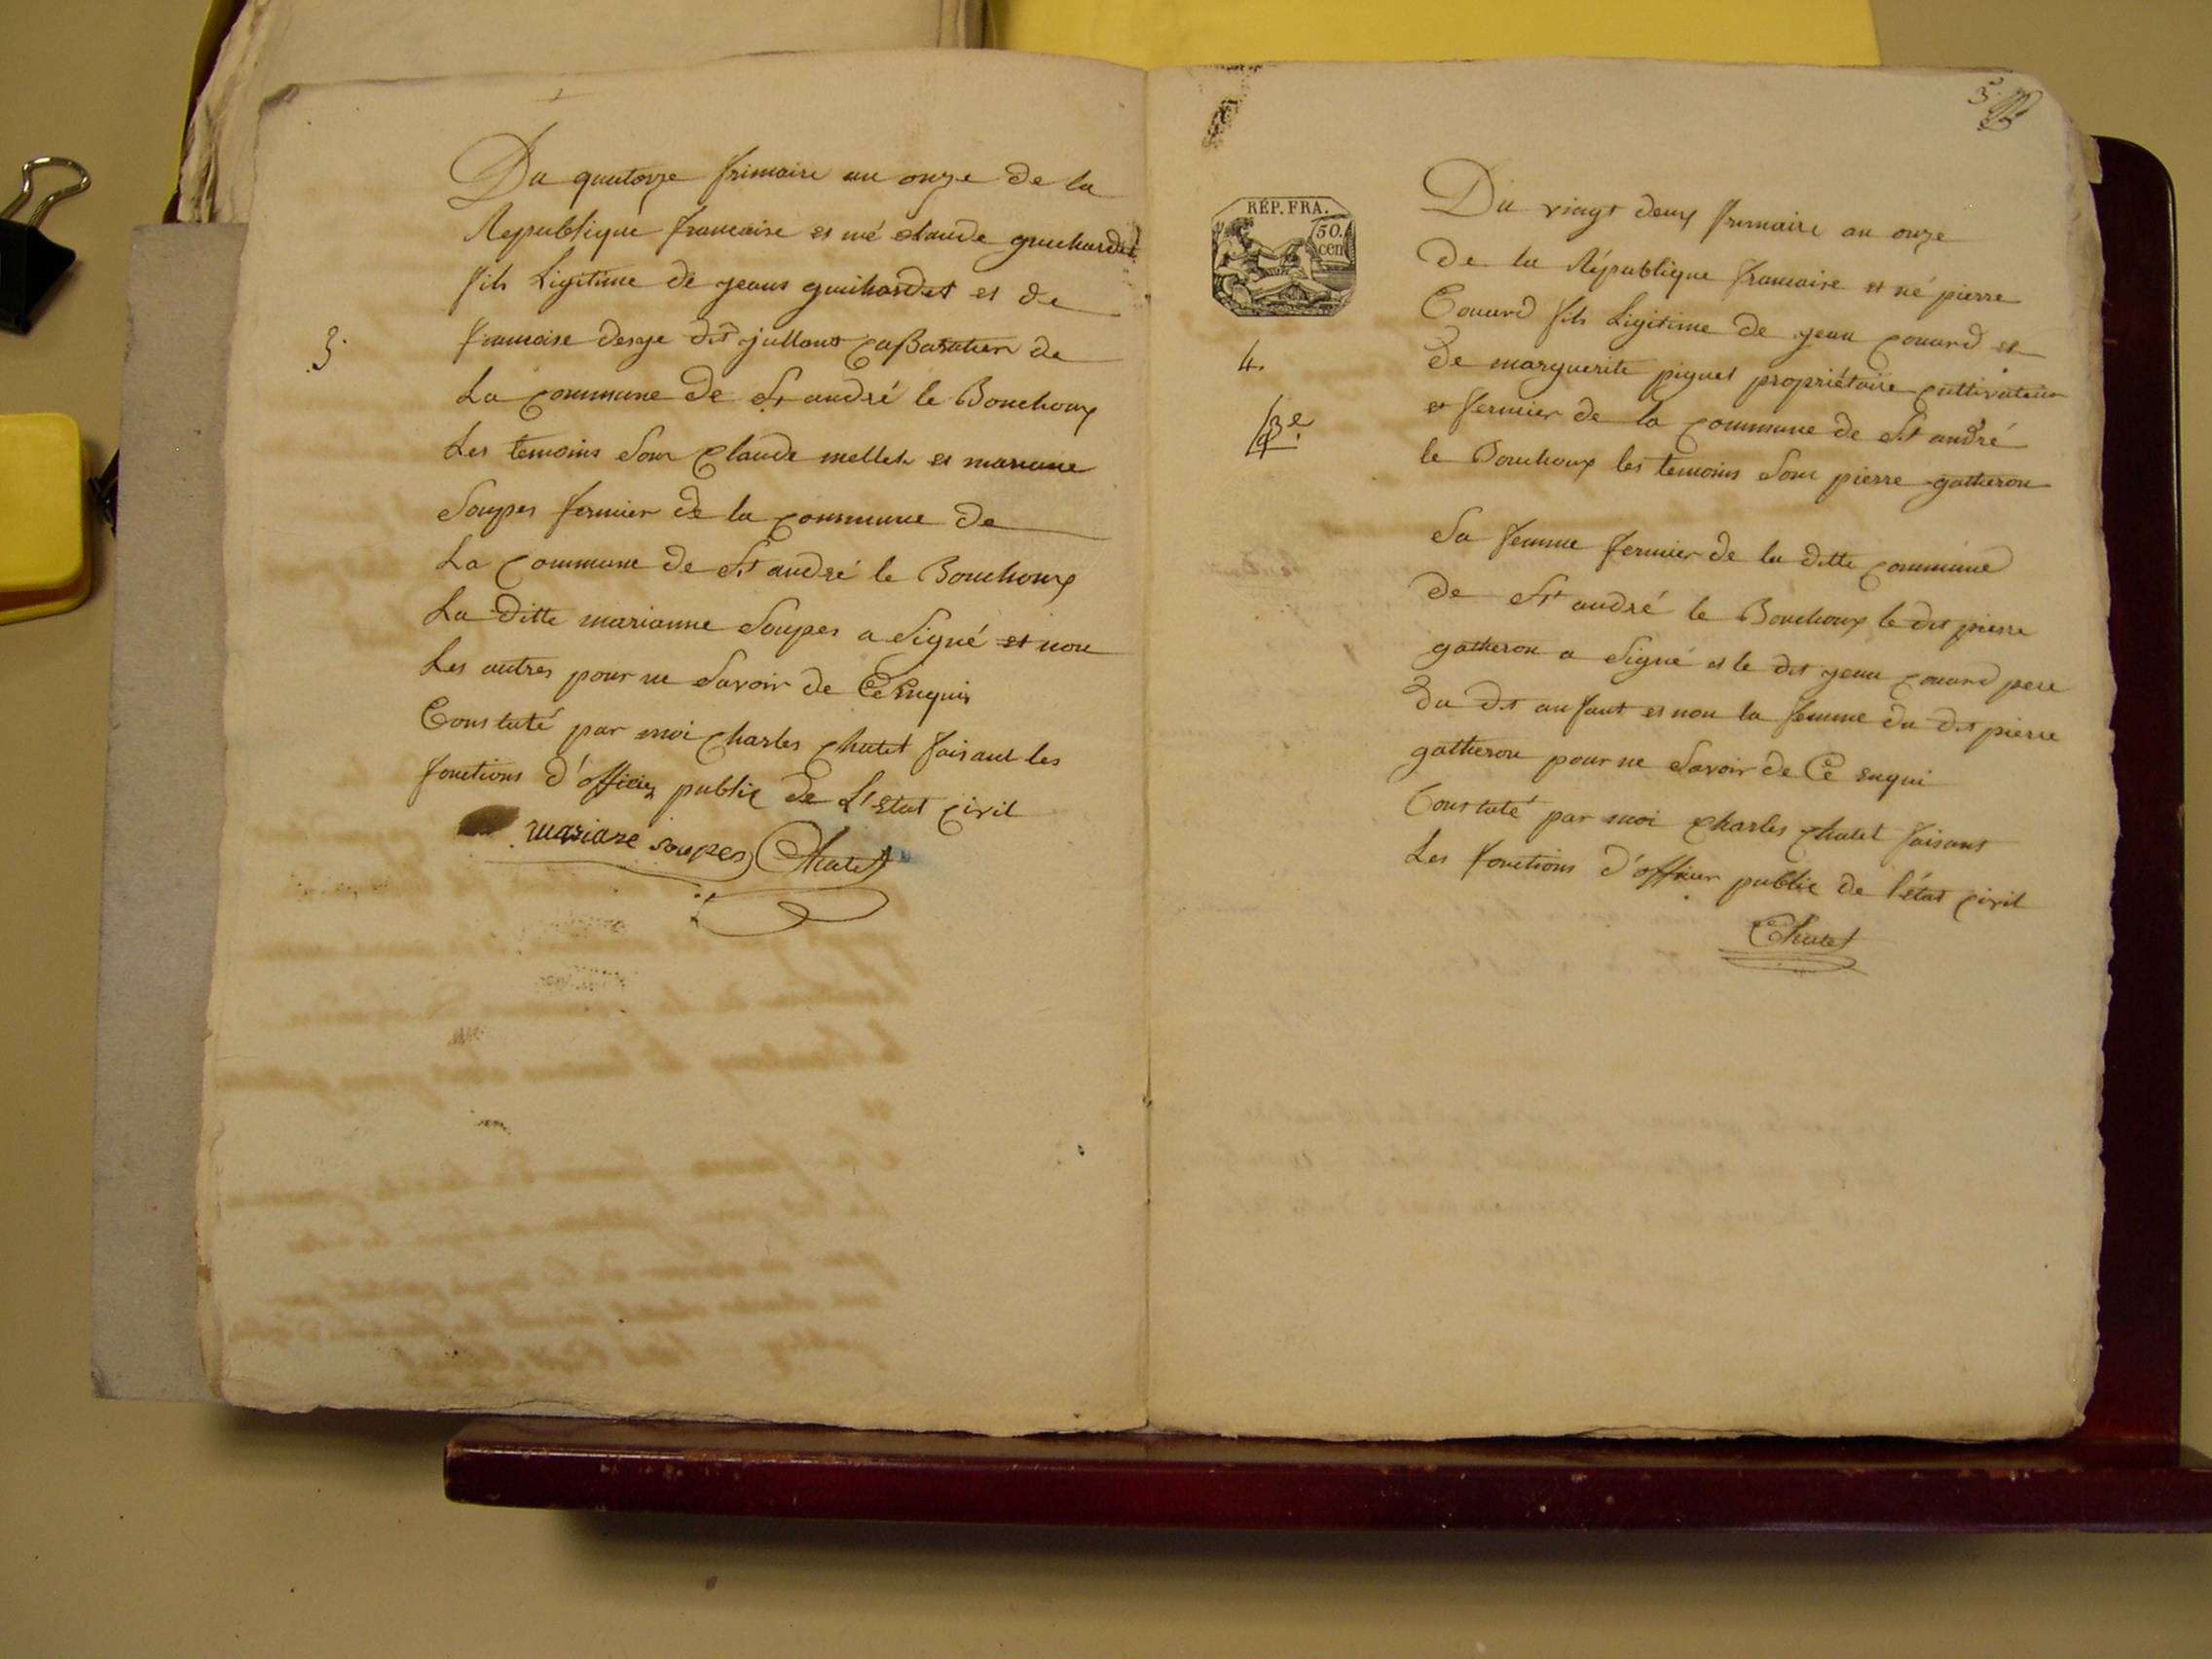 Du quatorze frimaire an onze de la
Republique francaise est né claude guichardet
fils Ligitime de jeans guichardet et de
francoise desge dit jullans Cabaratier de
3.
La Commune de St andré le Bouchoux
Les temoins Son Claude mellet et mariane
Soupes fermier de la Commune de
La Commune de St andré le Bouchoux
La ditte marianne Soupes a Signé et non
Les autres pour ne Savoir de Ce enquis
Constaté par moi Charles Chatet faisant les
fonctions d'officier public de L'Etat Civil
mariane soupes Chatet
5.
RÉP. FRA.
50.
cen
Du vingt deux frimaire an onze
de la République francaise et né pierre
Couard fils Ligitime de jean Couard et
4.
de marguerite piquet propriétaire Cultivateur
3e
et fermier de la Commune de St andré
le Bouchoux les temoins Son pierre gatheron
Sa femme fermier de la ditte Commune
de St andré le Bouchoux le dit pierre
gatheron a Signé et le dit jean Couard pere
du dit anfant et non la femme du dit pierre
gatheron pour ne Savoir de Ce enqui
Constaté par moi Charles Chatet faisant
Les fonctions d'officier public de l'état Civil
Chatet